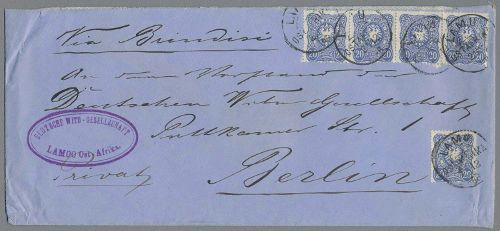 Via Brindisi
An den Vorstand der
Deutschen Witu Gesellschaft
Puttkamer Str. 1
Berlin
DEUTSCHE WITU-GESELLSCHAFT
LAMOO Ost-Afrika.
Privat
LAMU
20 20 20 20
LAMU
20